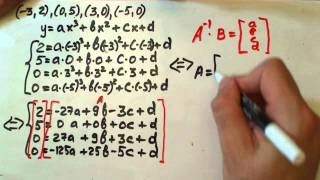 (-3, 2), (0,5), (3,0), (-5,0)
y=ax³+bx²+cx+d
2=a·(-3)³+b·(-3)²+c·(-3)+d
5=a·0+b·0+c·0+d
0=a·3³+b·3²+c·3+d
0=a(-5)³+b(-5)²+c·(-5)+d
⇔
2=-27a+9b-3c+d
5=0a+0b+0c+d
0=27a+9b+3c+d
0=-125a+25b-5c+d
A⁻¹B=[a b c d]
⇔ A=[